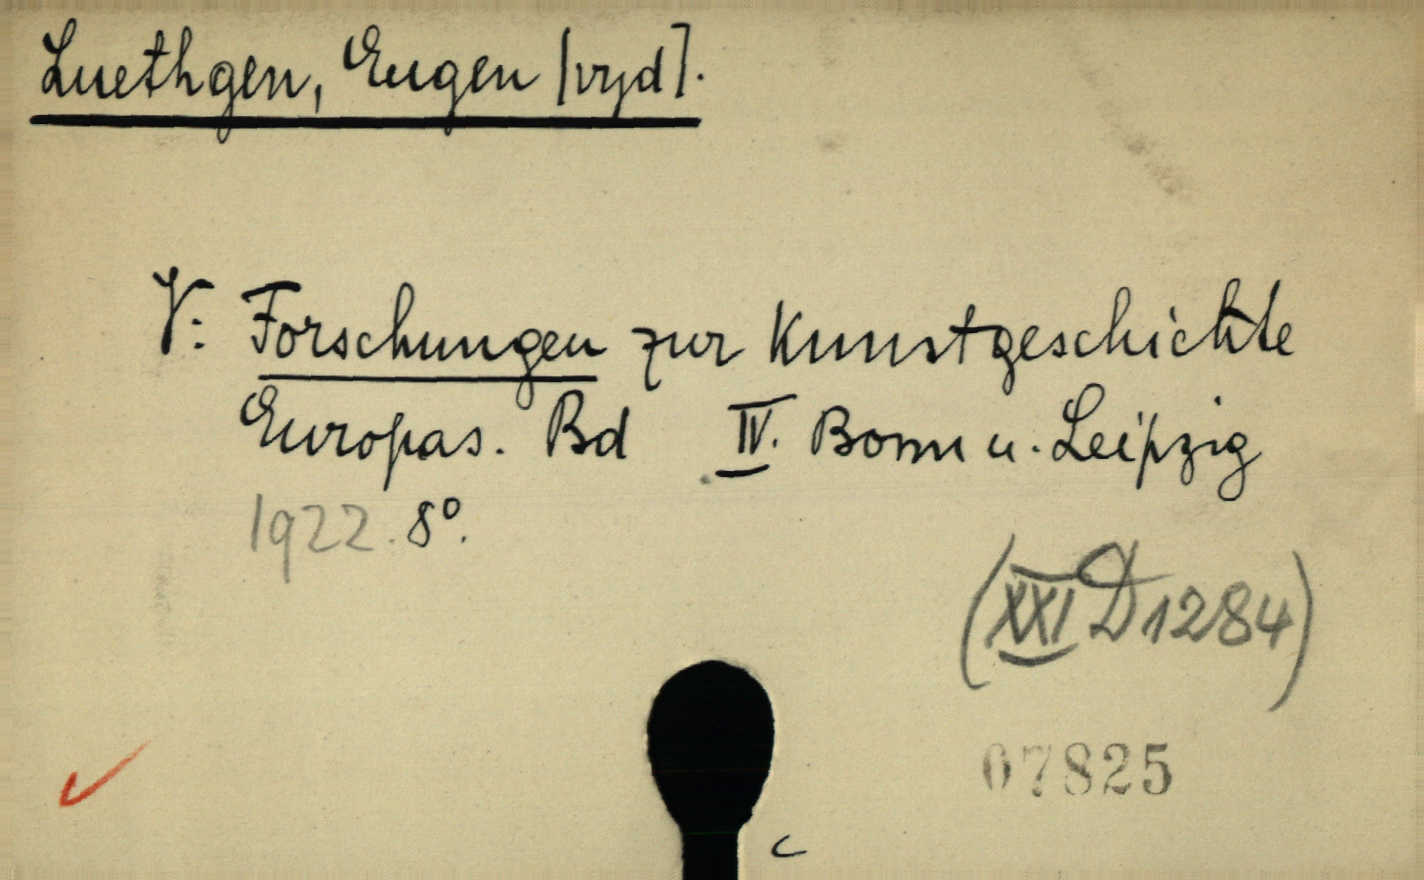 Luethgen, Eugen [vyd].
V: Forschungen zur Kunstgeschichte
Europas. Bd IV. Bonn u. Leipzig
1922. 8°.
(XXI D 1284)
07825
c